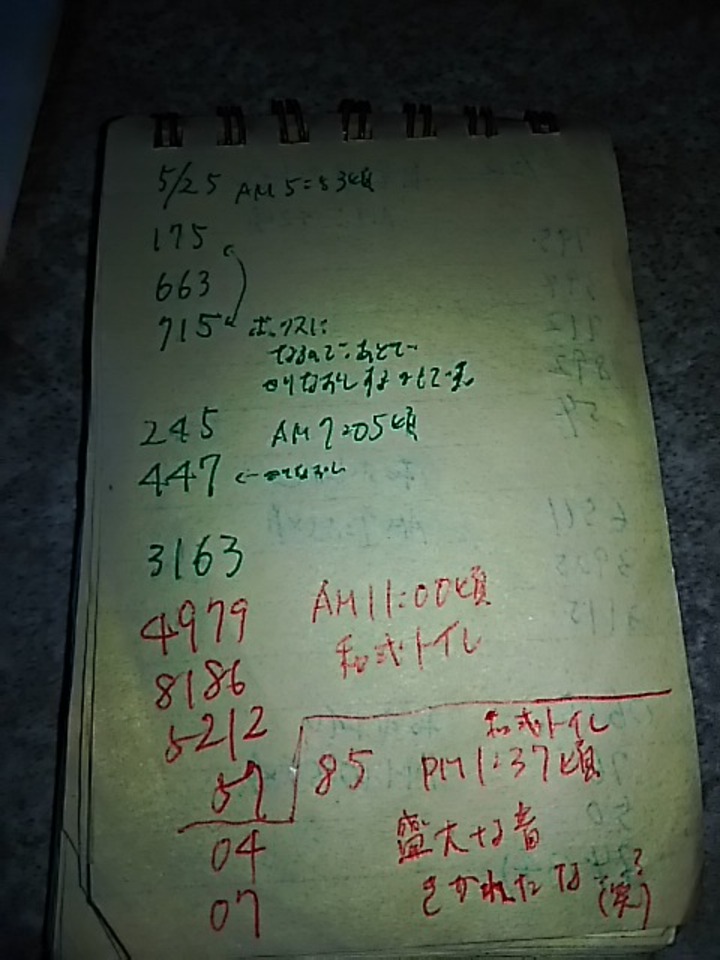 5/25 AM5:53頃
175
663
715 ボックスに
なるので、あとで
やりなおしするやもです
245 AM7:05頃
447 ←やりなおし
3163
4979 AM11:00頃
8186 和式トイレ
5212 和式トイレ
57 85 PM1:37頃
04 盛大な音
07 きかれたな?(笑)